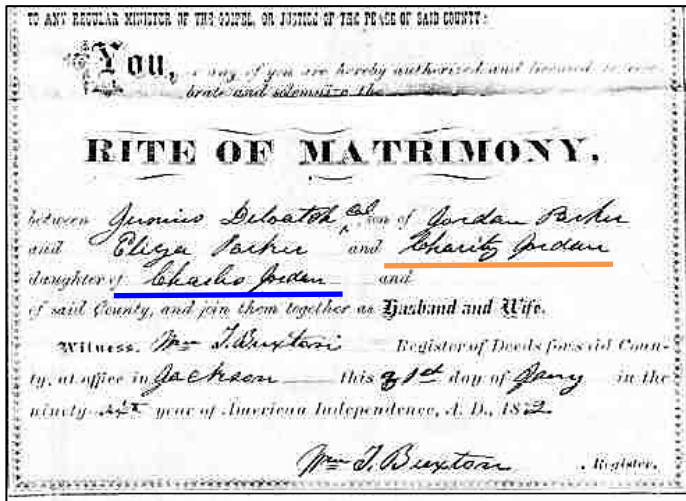 TO ANY REGULAR MINISTER OF THE GOSPEL, OR JUSTICE OF THE PEACE OF SAID COUNTY:
You, or any of you are hereby authorized and licensed to cele-
brate and solemnize the
RITE OF MATRIMONY,
between Junius Deloatch Col, son of Jordan Parker
and Eliza Parker and Charity Jordan
daughter of Charles Jorden and
of said County, and join them together as Husband and Wife.
Witness, Wm T. Buxton Register of Deeds for said Coun-
ty, at office in Jackson this 31st day of Jany in the
ninety year of American Independence, A. D., 1872
Wm T. Buxton , Register.